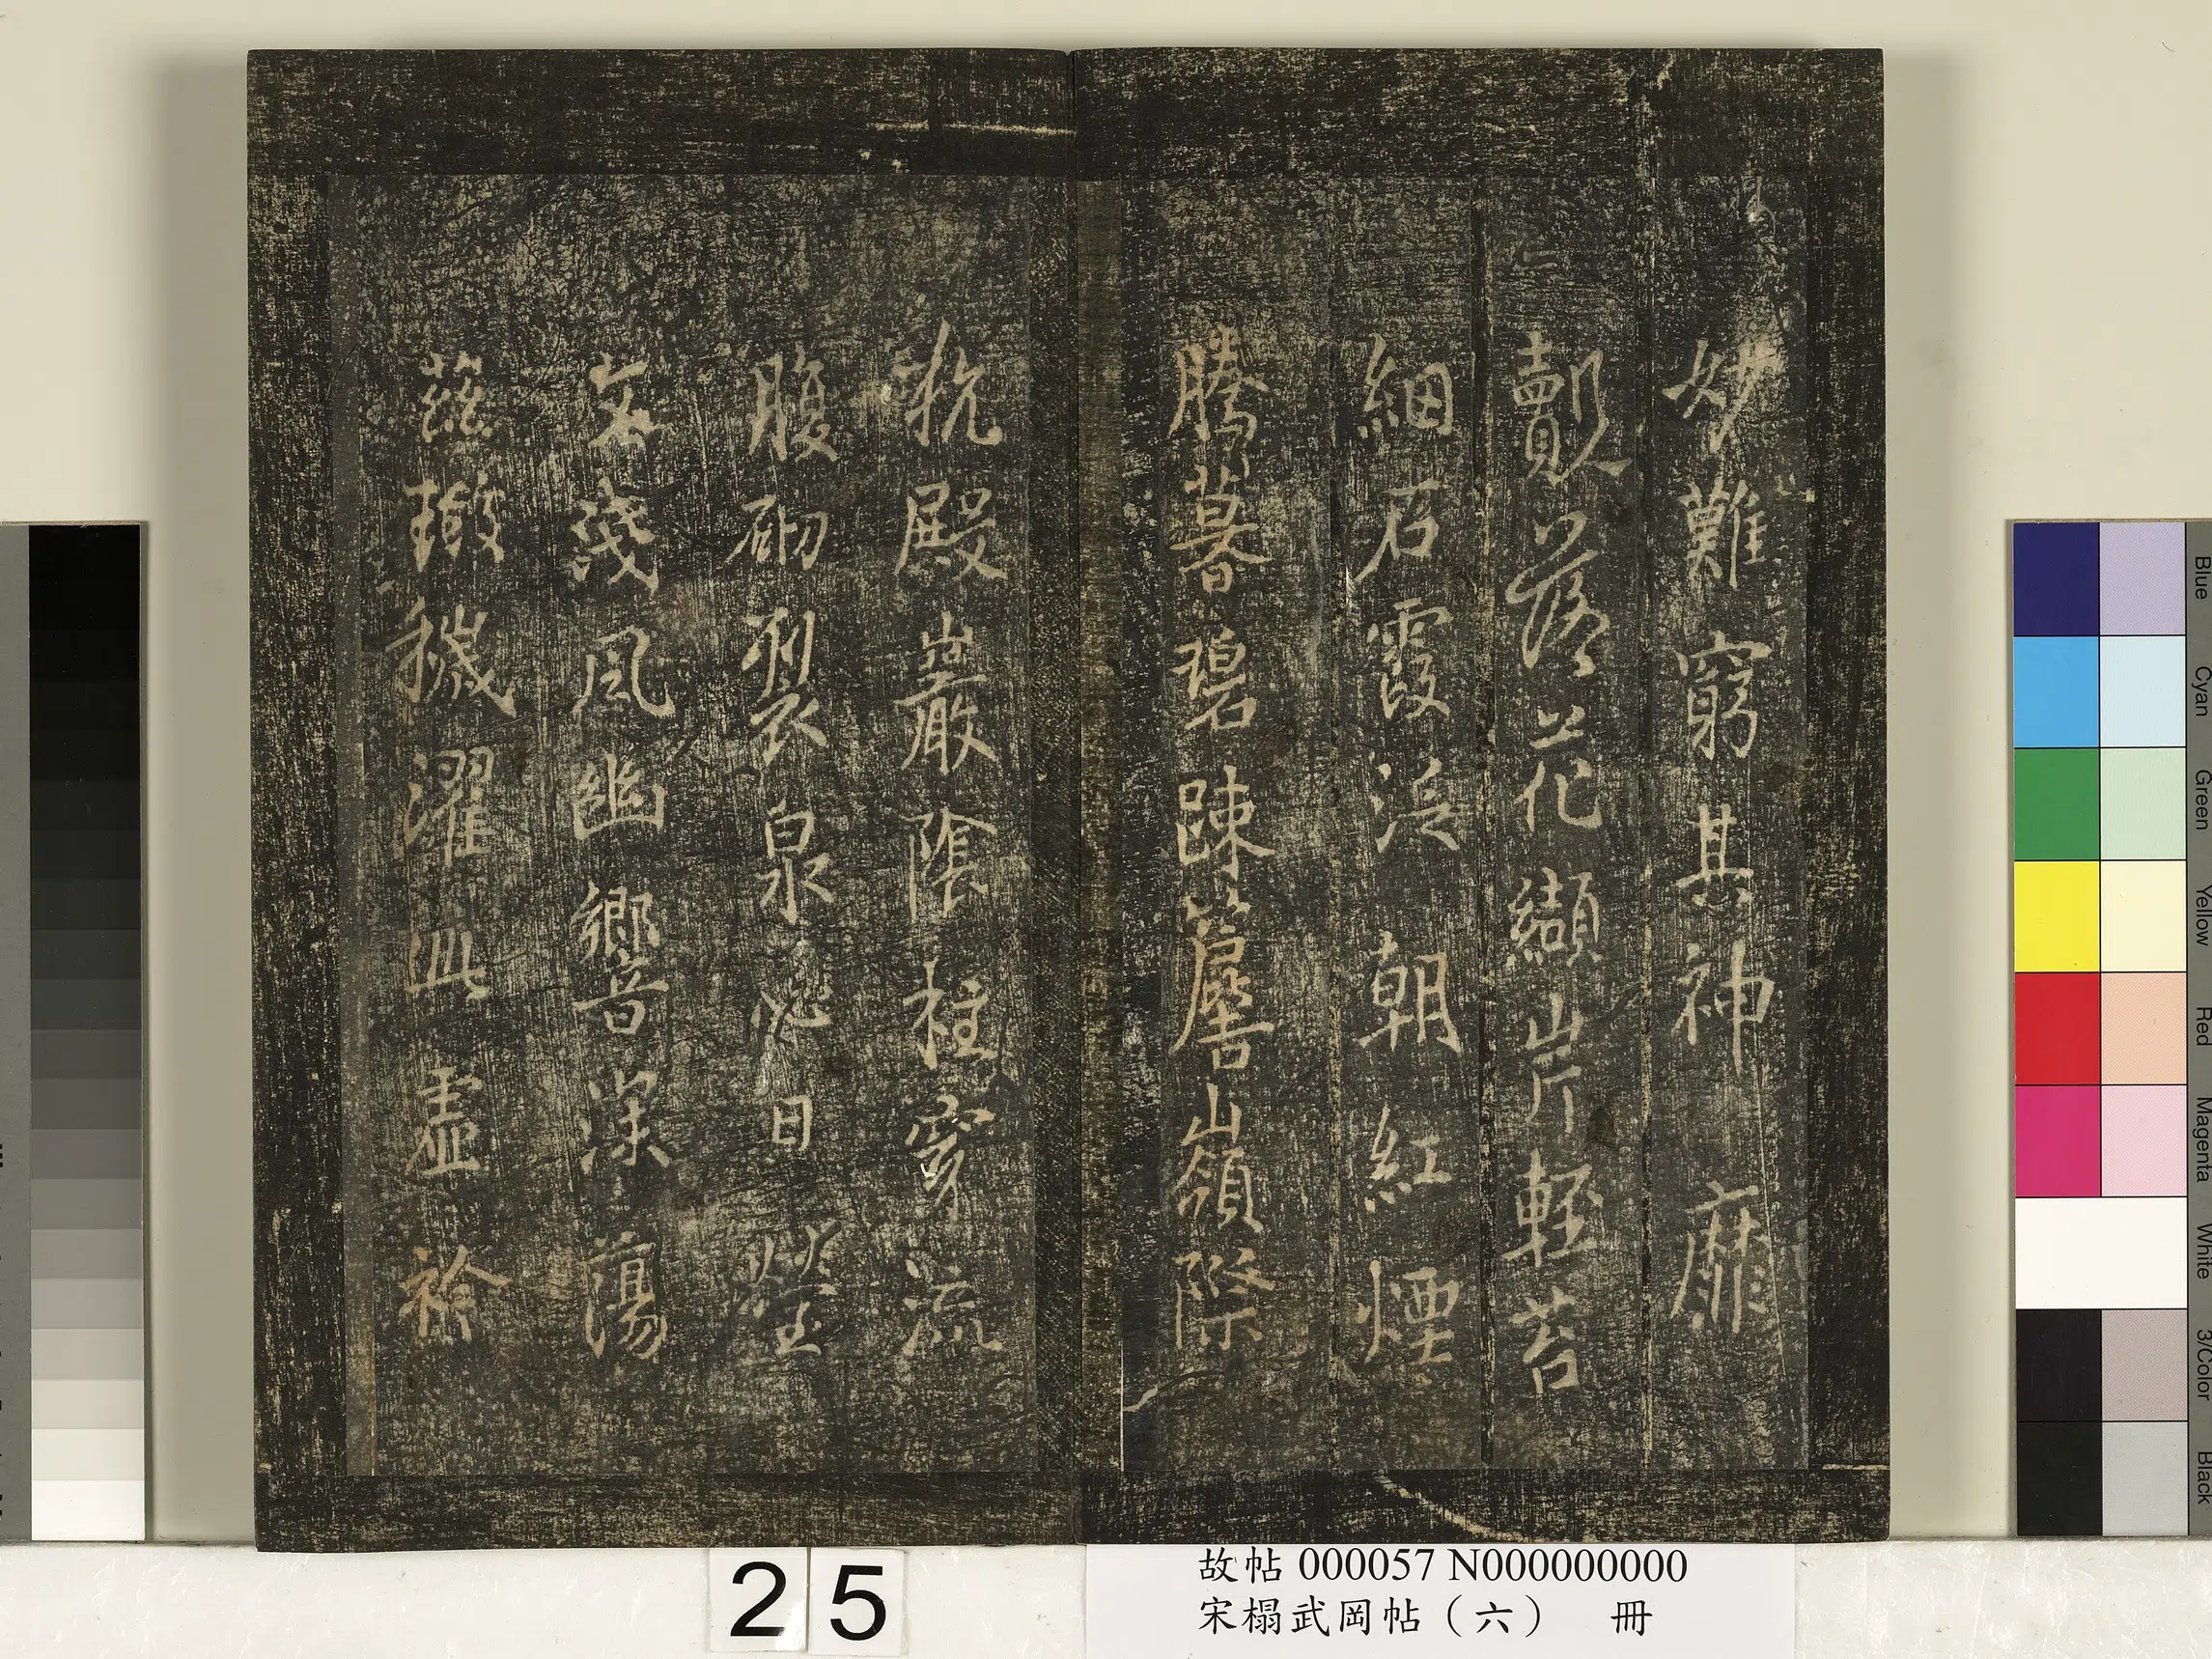 妙難窮其神靡
覿落花纈岸輕苔
細石霞泛朝紅煙
騰暮碧踈簷嶺際
抗殿巖陰柱穿流
腹砌裂泉心日瑩
文淺風幽響深蕩
茲瑕穢濯此虛衿
25
故帖 000057 N000000000
宋榻武岡帖（六） 冊
Blue
Cyan
Green
Yellow
Red
Magenta
White
3/Color
Black